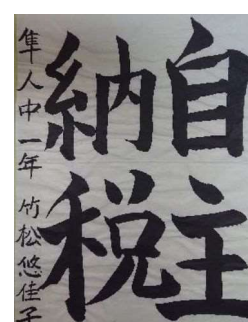 自主
納税
隼人中一年 竹松悠佳子